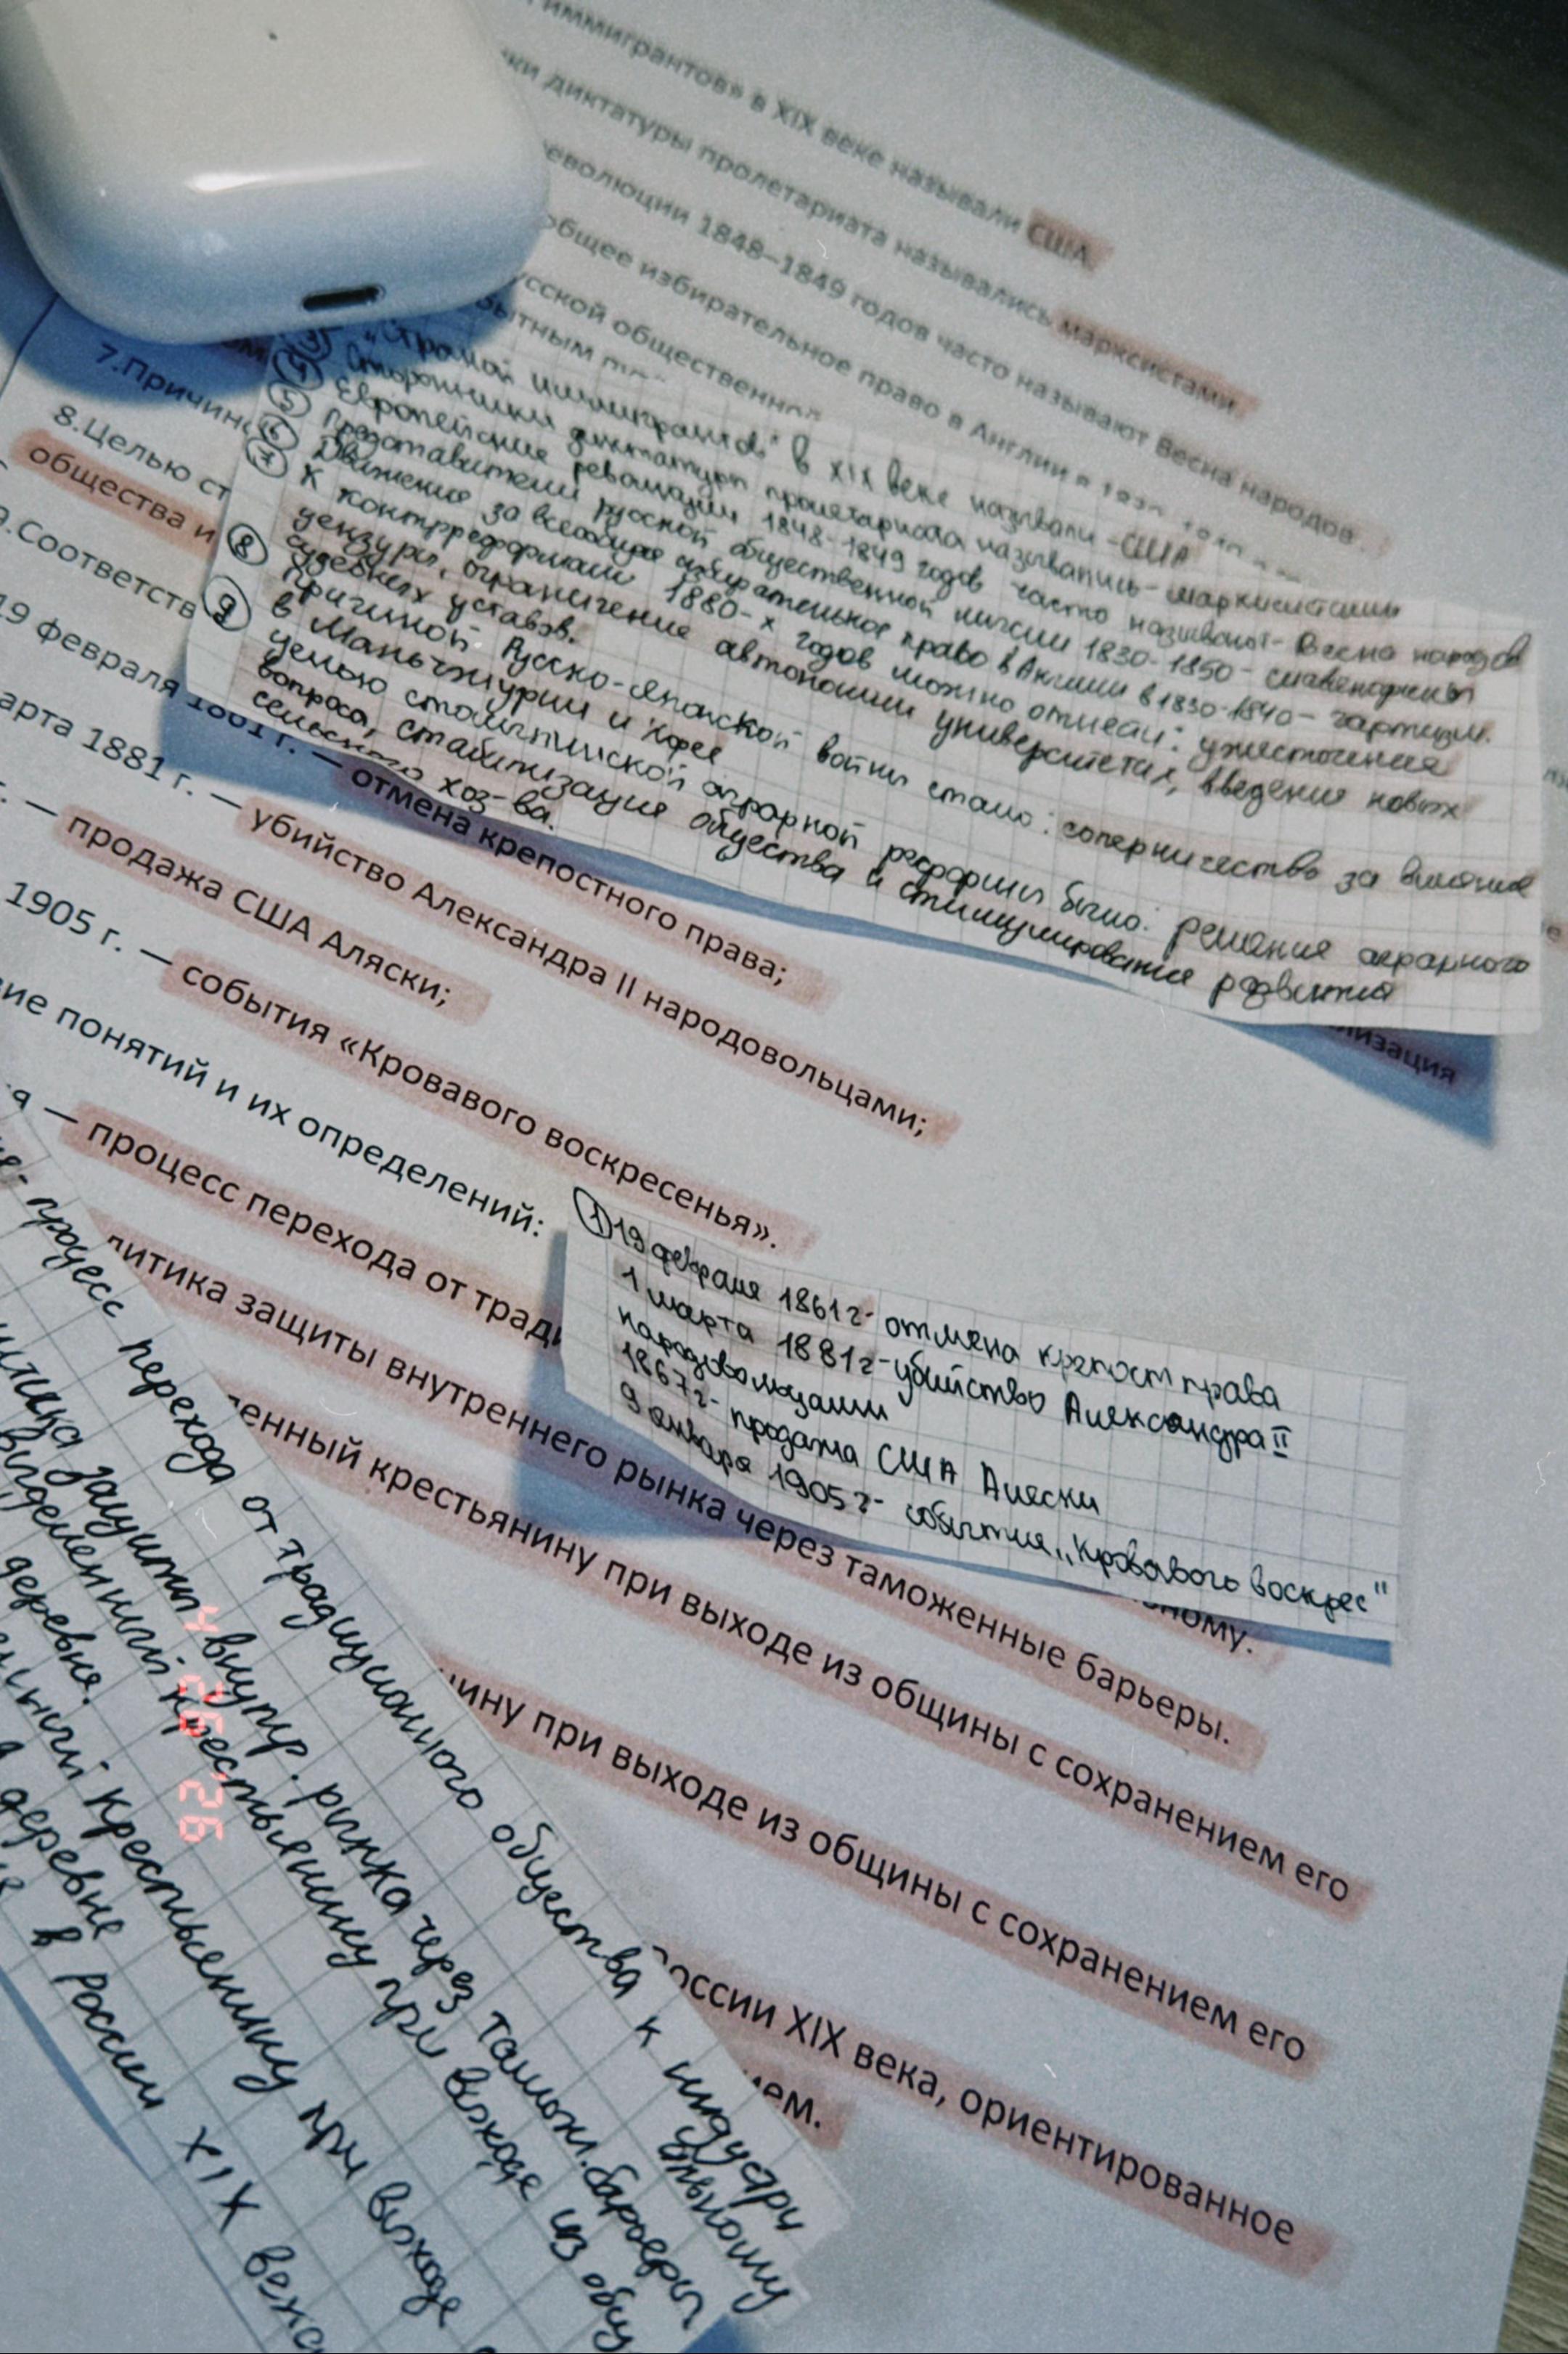 иммигрантов» в XIX веке называли США
ки диктатуры пролетариата назывались марксистами.
еволюции 1848–1849 годов часто называют Весна народов.
общее избирательное право в Англии в
усской общественной
бытным
7.Причин
8.Целью ст
общества и
9.Соответств
19 февраля 1861 г. — отмена крепостного права;
арта 1881 г. — убийство Александра II народовольцами;
г. — продажа США Аляски;
1905 г. — события «Кровавого воскресенья».
ие понятий и их определений:
я — процесс перехода от тради
ному.
литика защиты внутреннего рынка через таможенные барьеры.
енный крестьянину при выходе из общины с сохранением его
ину при выходе из общины с сохранением его
оссии XIX века, ориентированное
ем.
лизация
③ "Страной иммигрантов" в XIX веке называли - США
④ Сторонники диктатуры пролетариата назывались - марксистами
⑤ Европейские революции 1848-1849 годов часто называют - Весна народов
⑥ Представители русской общественной мысли 1830-1850 - славянофилы
⑦ Движение за всеобщее избирательное право в Англии в 1830-1840 - чартизм.
К контрреформам 1880-х годов можно отнести: ужесточение
цензуры, ограничение автономии университетах, введение новых
судебных уставов.
⑧ Причиной Русско-Японской войны стало: соперничество за влияние
в Маньчжурии и Корее
⑨ Целью столыпинской аграрной реформы было: решение аграрного
вопроса, стабилизация общества и стимулирование развития
сельского хоз-ва.
① 19 февраля 1861г- отмена крепост права
1 марта 1881г-убийство Александра II
народовольцами
1867г- продажа США Аляски
9 января 1905г- события „Кровавого воскрес"
процесс перехода от традиционного общества к индустри
альному
защиты внутр. рынка через тамож. барьеры
выделенный крестьянину при выходе из общ
деревне.
крестьянину при выходе
деревне
в России XIX века
26 26